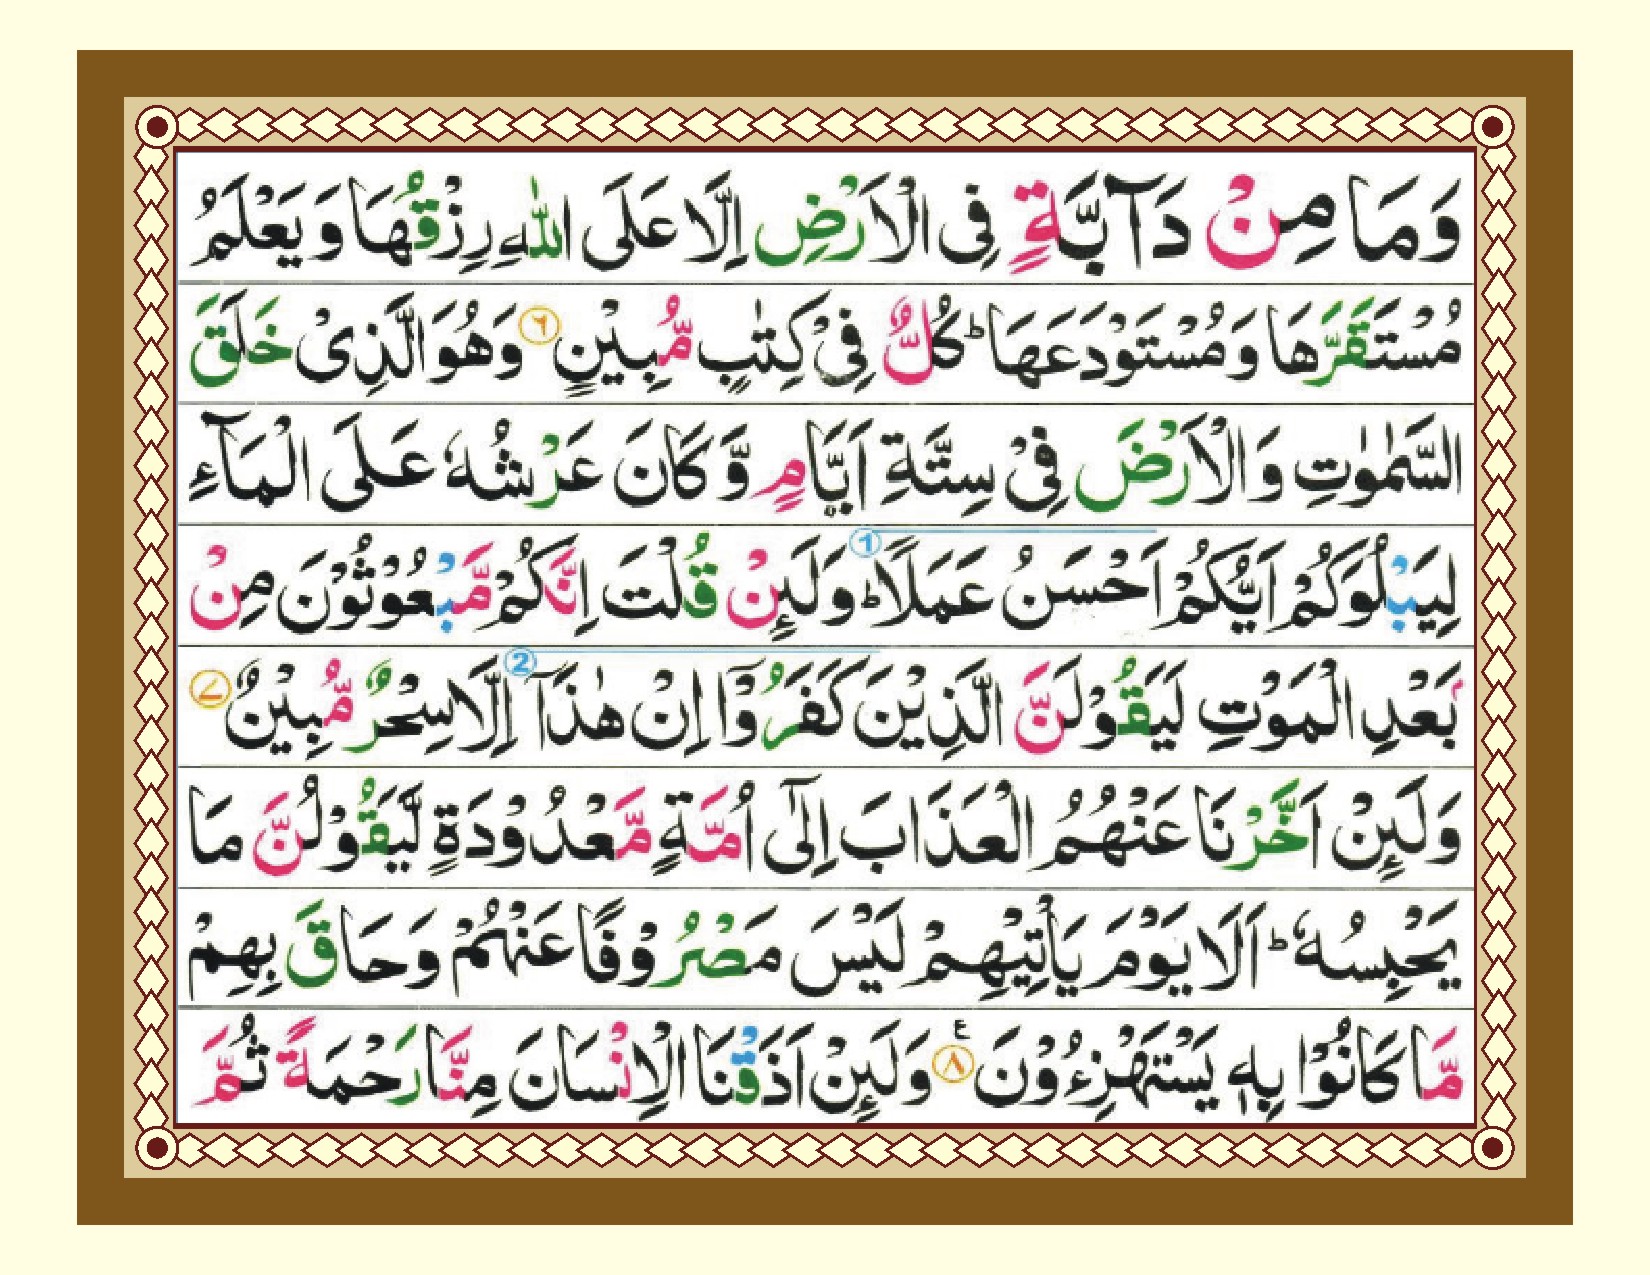 وَمَا مِنْ دَآبَّةٍ فِى الْاَرْضِ اِلَّا عَلَى اللّٰهِ رِزْقُهَا وَيَعْلَمُ
مُسْتَقَرَّهَا وَمُسْتَوْدَعَهَا ؕ كُلٌّ فِىْ كِتٰبٍ مُّبِيْنٍ ۶ وَهُوَ الَّذِىْ خَلَقَ
السَّمٰوٰتِ وَالْاَرْضَ فِىْ سِتَّةِ اَيَّامٍ وَّكَانَ عَرْشُهٗ عَلَى الْمَآءِ
لِيَبْلُوَكُمْ اَيُّكُمْ اَحْسَنُ عَمَلًا ؕ 1 وَلَئِنْ قُلْتَ اِنَّكُمْ مَّبْعُوْثُوْنَ مِنْۢ
بَعْدِ الْمَوْتِ لَيَقُوْلَنَّ الَّذِيْنَ كَفَرُوْۤا اِنْ هٰذَاۤ 2 اِلَّا سِحْرٌ مُّبِيْنٌ ۷
وَلَئِنْ اَخَّرْنَا عَنْهُمُ الْعَذَابَ اِلٰٓى اُمَّةٍ مَّعْدُوْدَةٍ لَّيَقُوْلُنَّ مَا
يَحْبِسُهٗ ؕ اَلَا يَوْمَ يَاْتِيْهِمْ لَيْسَ مَصْرُوْفًا عَنْهُمْ وَحَاقَ بِهِمْ
مَّا كَانُوْا بِهٖ يَسْتَهْزِءُوْنَ ۸ ع وَلَئِنْ اَذَقْنَا الْاِنْسَانَ مِنَّا رَحْمَةً ثُمَّ